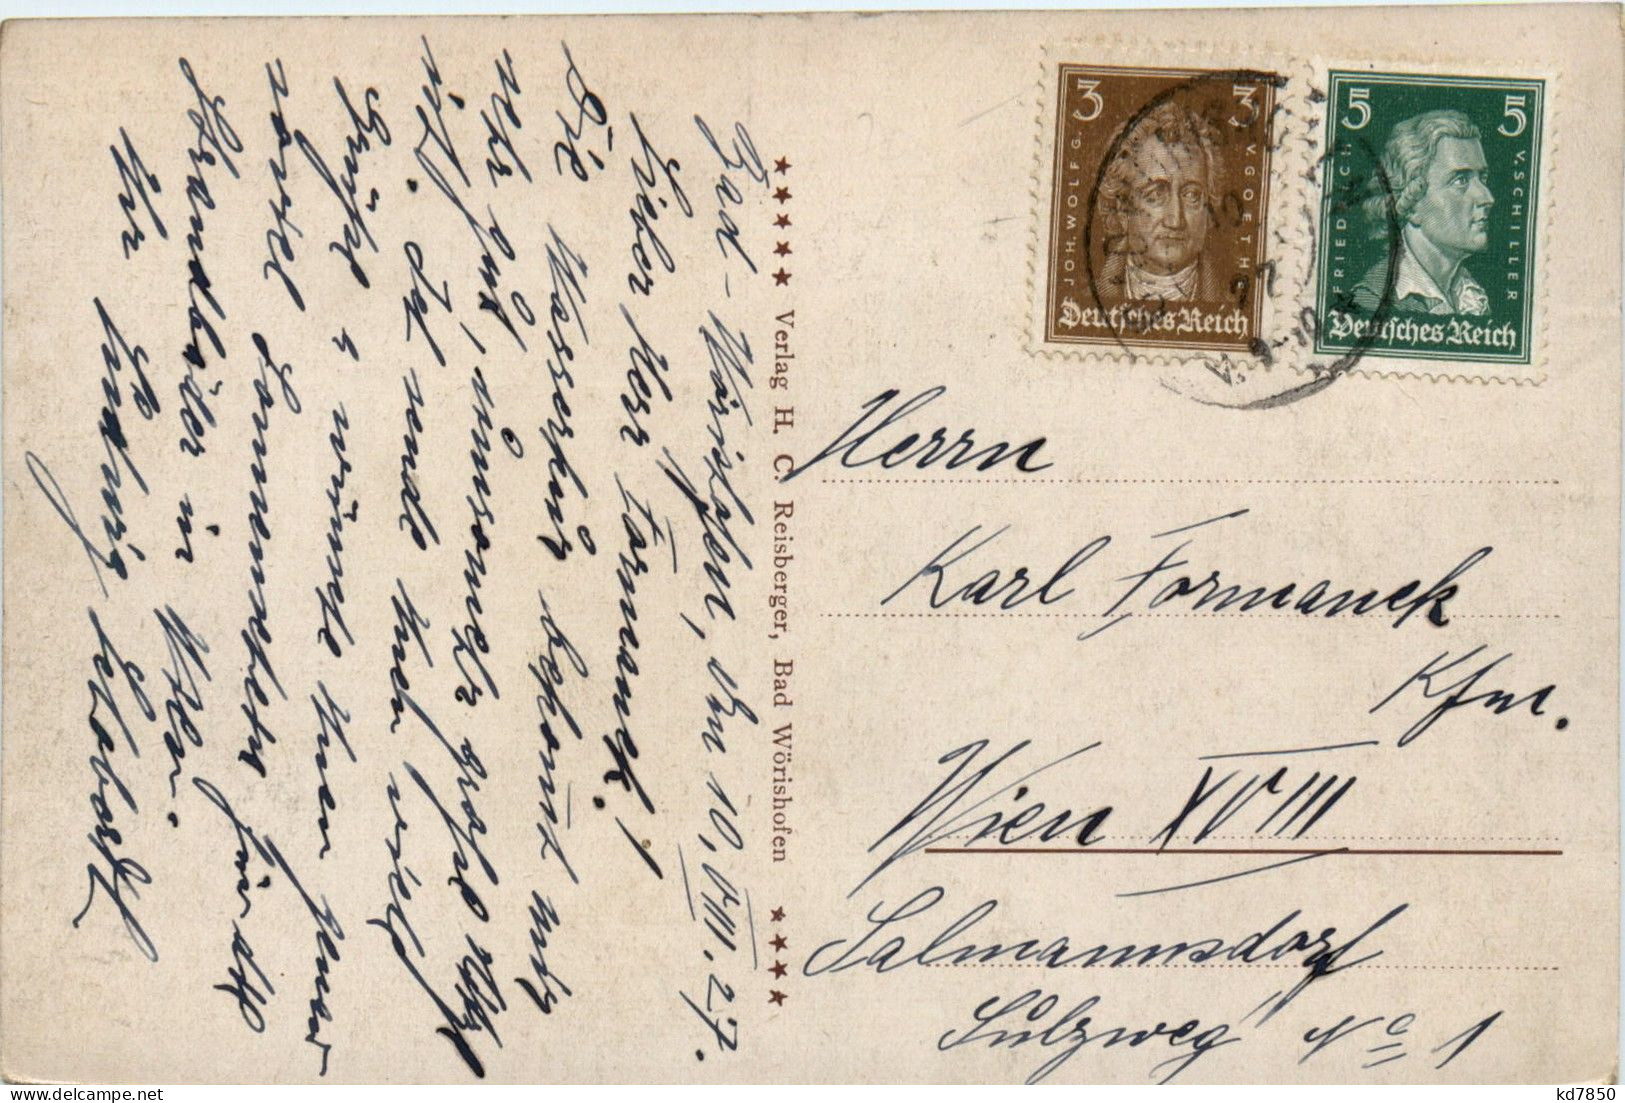 Bad-Wörishofen, den 10. VIII. 27.
Lieber Herr Formanek!
Die Wasserkur bekommt mir
sehr gut, umsomehr große Hitze
ist. Ich sende Ihnen viele
Grüße u wünsche Ihnen
soviel Sonnenstein für die
Strandbäder in Wien.
Ihr Ludwig
★★★★★ Verlag H. C. Reisberger, Bad Wörishofen ★★★★
3 3
JOH. WOLFG. V. GOETHE
Deutsches Reich
5 5
FRIEDRICH V. SCHILLER
Deutsches Reich
10
27
V. 9-10
Herrn
Karl Formanek
Kfm.
Wien XVIII
Salmannsdorf
Sulzweg No 1
delcampe.net
kd7850